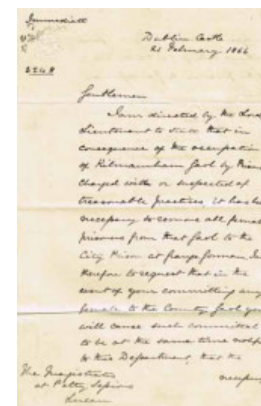 Immediate
Dublin Castle
21 February 1866
5248
Gentlemen
I am directed by the Lord
Lieutenant to state that in
consequence of the occupation
of Kilmainham Gaol by
charged with or suspected of
treasonable practices, it has
necessary to remove all
prisoners from that Gaol to the
City Prison at
therefore to request that in the
event of your committing any
female to the County Gaol you
will cause such committal
to be at the same time
to this Department, that the
The Magistrates
at Petty Sessions
Lucan